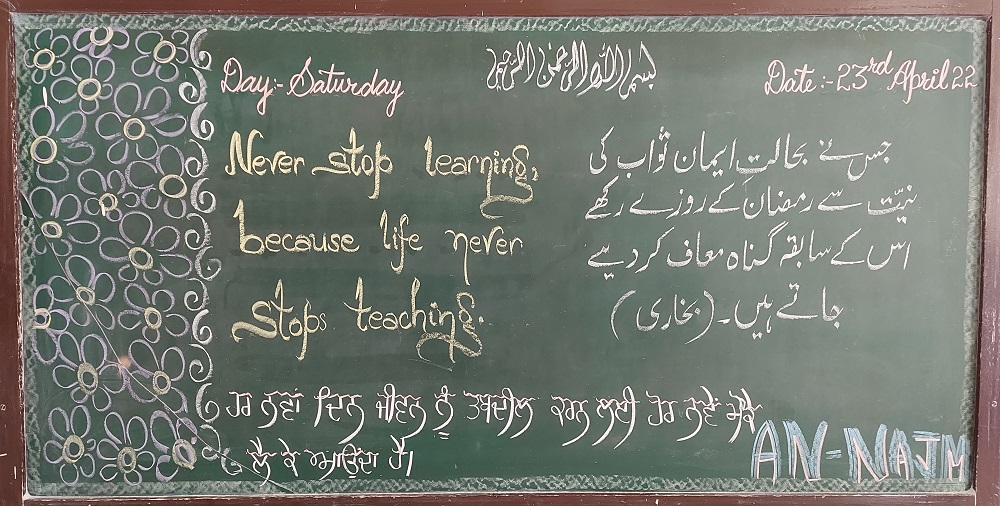 بسم اللہ الرحمن الرحیم
Day:- Saturday
Date:- 23rd April 22
Never stop learning,
because life never
stops teaching.
جس نے بحالتِ ایمان ثواب کی
نیّت سے رمضان کے روزے رکھے
اس کے سابقہ گناہ معاف کر دیے
جاتے ہیں۔ (بخاری)
ਹਰ ਨਵਾਂ ਦਿਨ ਜੀਵਨ ਨੂੰ ਤਬਦੀਲ ਕਰਨ ਲਈ ਹੋਰ ਨਵੇਂ ਮੌਕੇ
ਲੈ ਕੇ ਆਉਂਦਾ ਹੈ।
AN-NAJM